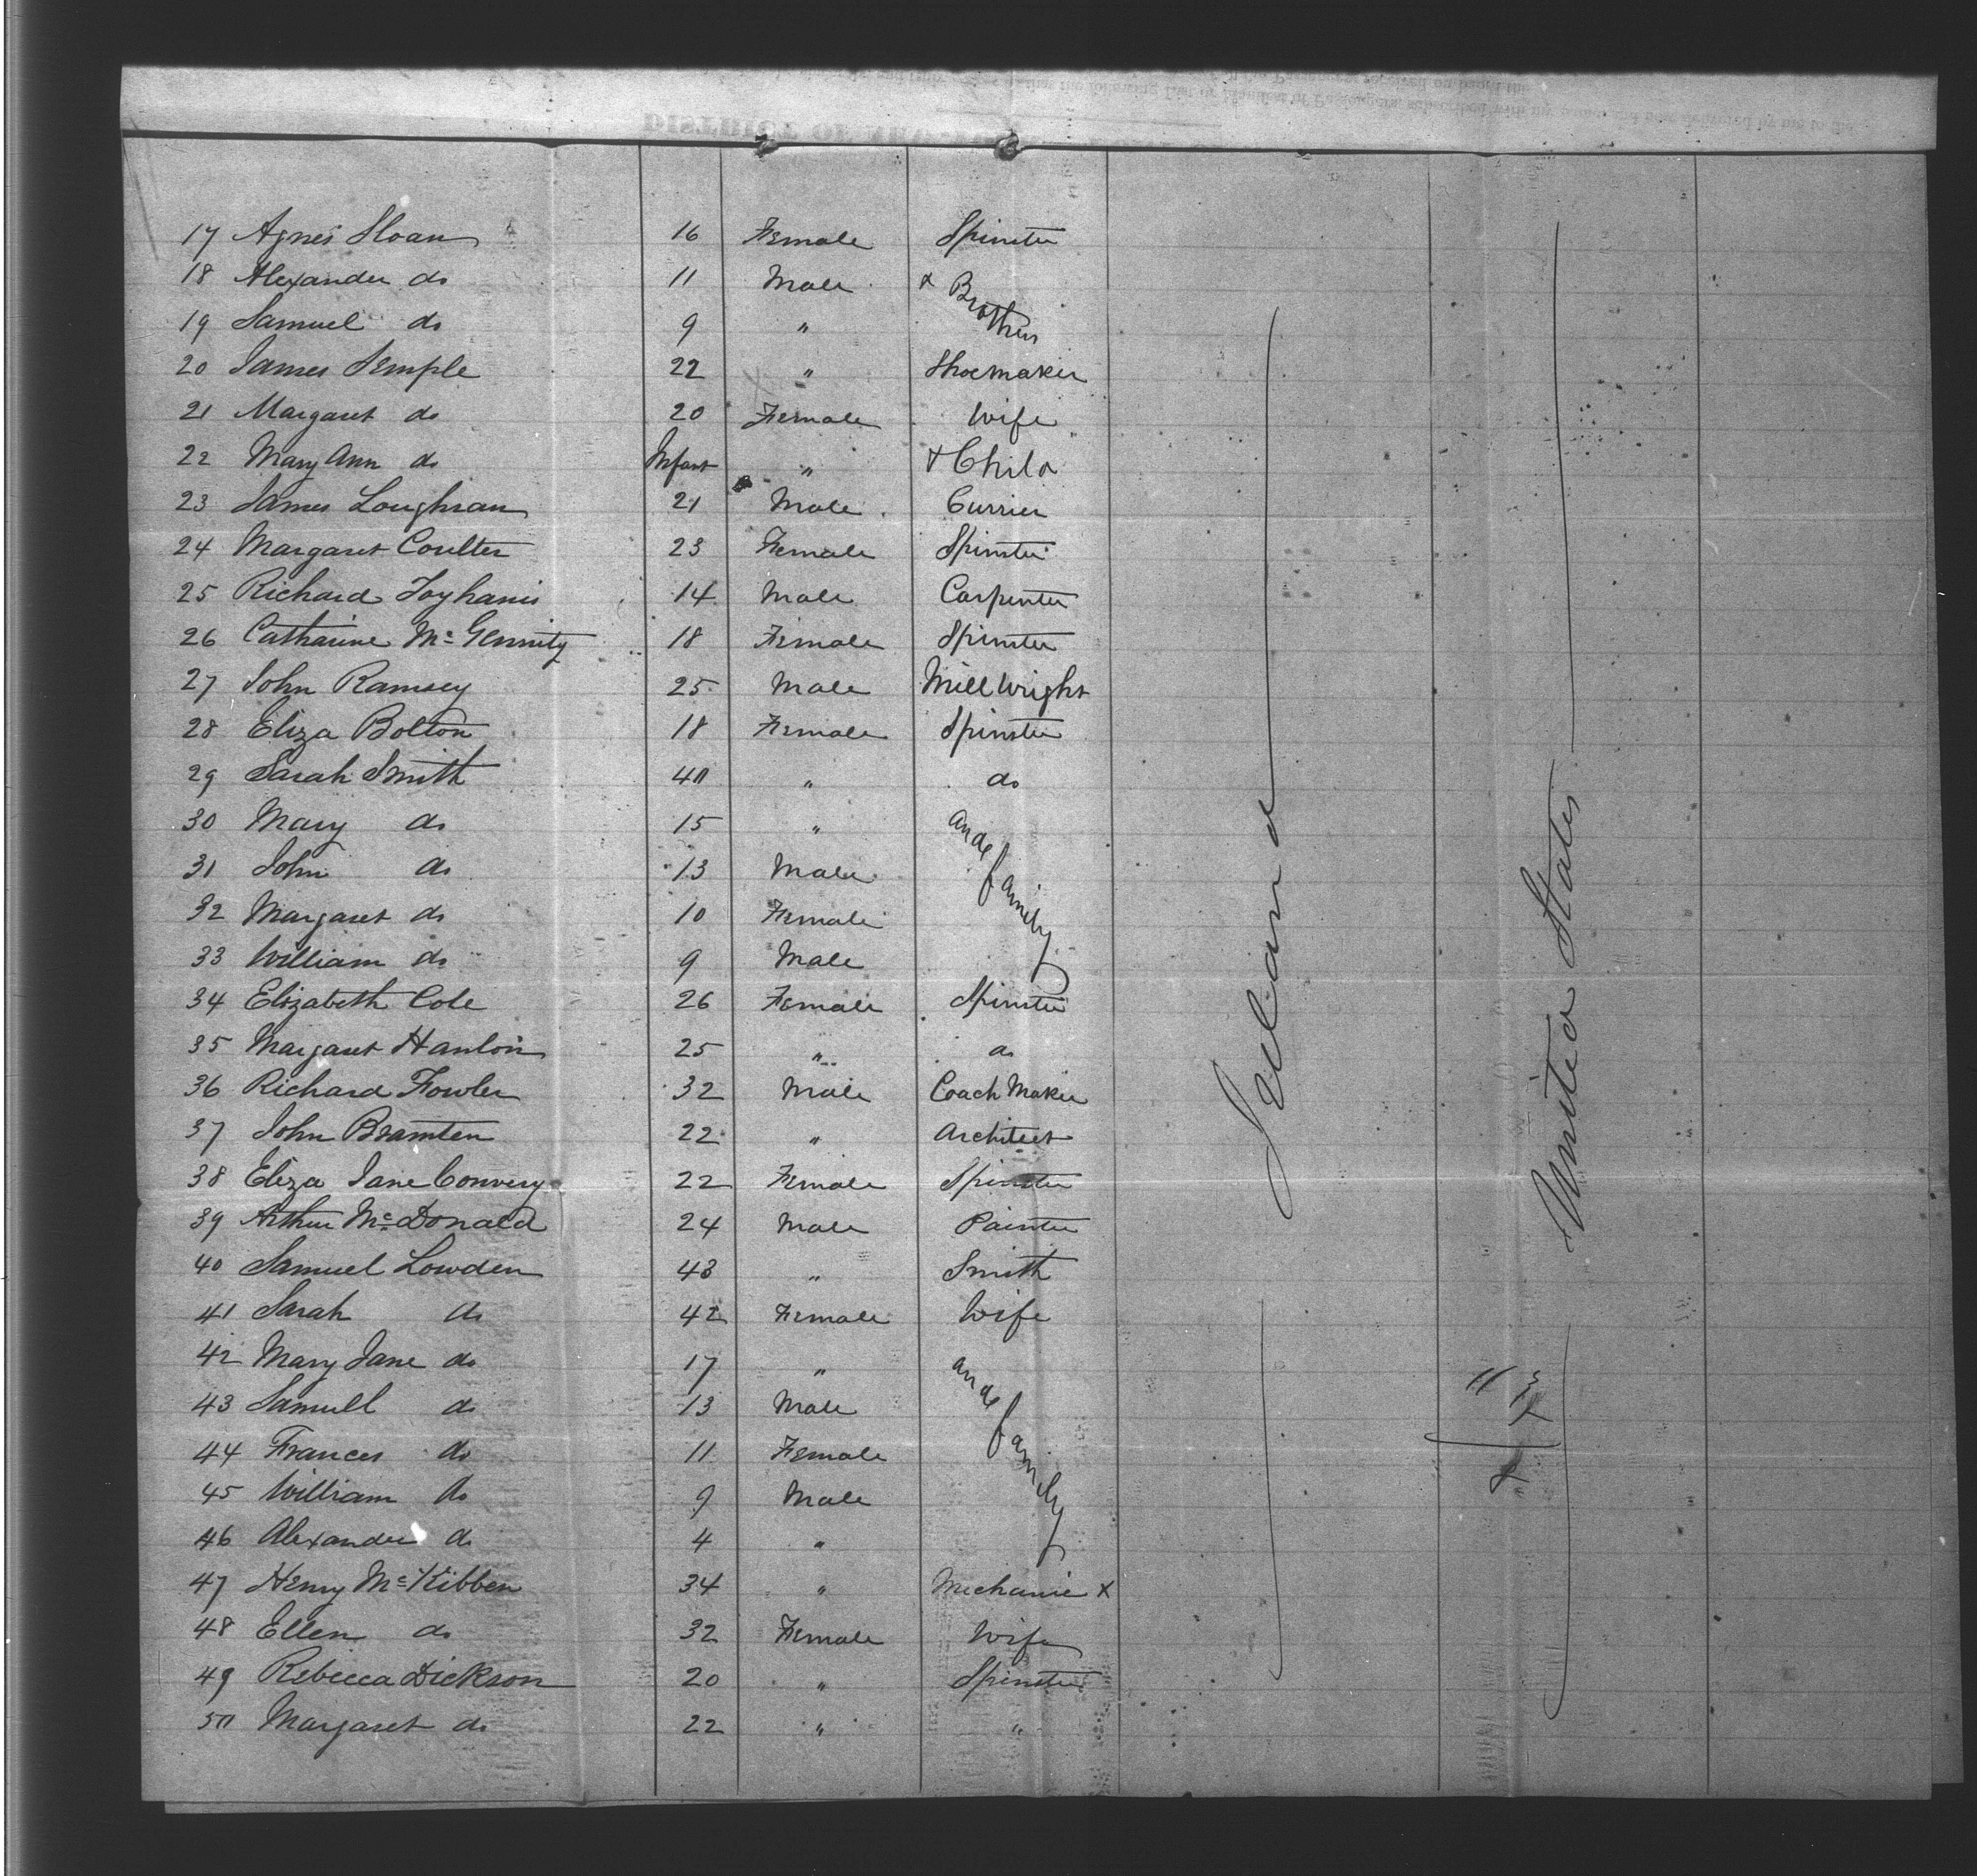 DISTRICT OF NEW-YORK
17 Agnes Sloan 16 Female Spinster
18 Alexander do 11 Male & Brothers
19 Samuel do 9 "
20 James Semple 22 " Shoemaker
21 Margaret do 20 Female Wife
22 Mary Ann do Infant " & Child
23 James Loughran 21 Male Currier
24 Margaret Coulter 23 Female Spinster
25 Richard 14 Male Carpenter
26 Catharine Mc Gennity 18 Female Spinster
27 John Ramsey 25 Male Mill Wright
28 Eliza Bolton 18 Female Spinster
29 Sarah Smith 40 " do
30 Mary do 15 " and family
31 John do 13 Male
32 Margaret do 10 Female
33 William do 9 Male
34 Elizabeth Cole 26 Female Spinster
35 Margaret Hanlon 25 " do
36 Richard Fowler 32 Male Coach Maker
37 John Bramten 22 " Architect
38 Eliza Jane Convery 22 Female Spinster
39 Arthur McDonald 24 Male Painter
40 Samuel Lowden 43 " Smith
41 Sarah do 42 Female Wife
42 Mary Jane do 17 " and family
43 Samuel do 13 Male
44 Frances do 11 Female
45 William do 9 Male
46 Alexander do 4 "
47 Henry McKibben 34 " Mechanic x
48 Ellen do 32 Female Wife
49 Rebecca Dickson 20 " Spinster
50 Margaret do 22 " "
Ireland
United States